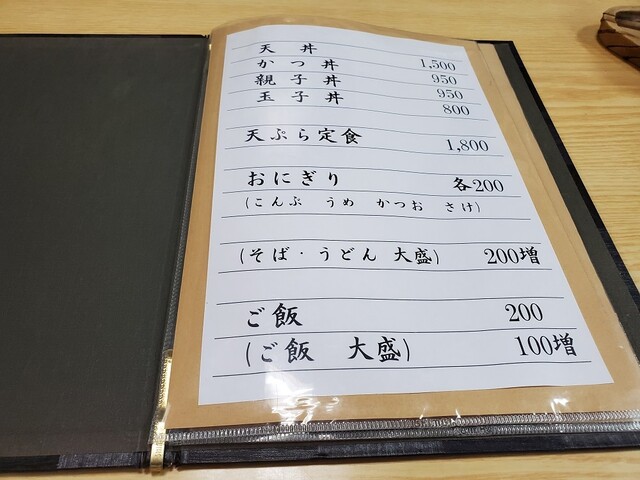 天丼 1,500
かつ丼 950
親子丼 950
玉子丼 800
天ぷら定食 1,800
おにぎり 各200
(こんぶ うめ かつお さけ)
(そば・うどん 大盛) 200増
ご飯 200
(ご飯 大盛) 100増